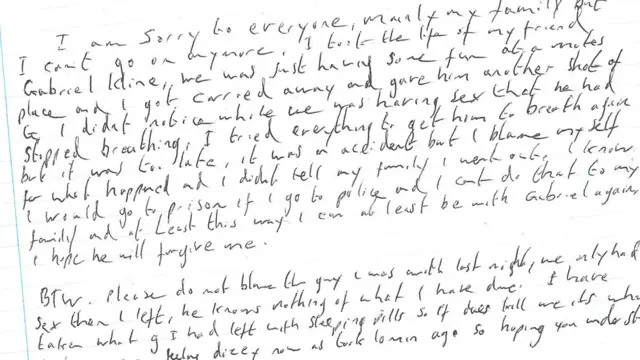 I am sorry to everyone, mainly my family but
I cant go on anymore. I took the life of my friend
Gabriel kline, we was just having some fun at a mates
place and I got carried away and gave him another shot of
G. I didnt notice while we was having sex that he had
stopped breathing. I tried everything to get him to breath again
but it was to late, it was an accident but I blame myself
for what happened and I didnt tell my family I went out. I know
I would go to prison if I go to police and I cant do that to my
family and at least this way I can at least be with Gabriel again
I hope he will forgive me.
BTW. Please do not blame the guy I was with last night, we only had
sex then I left, he knows nothing of what I have done. I have
taken what g I had left with sleeping pills so if it does kill me its what
dizzy now as took 10 min ago so hoping you